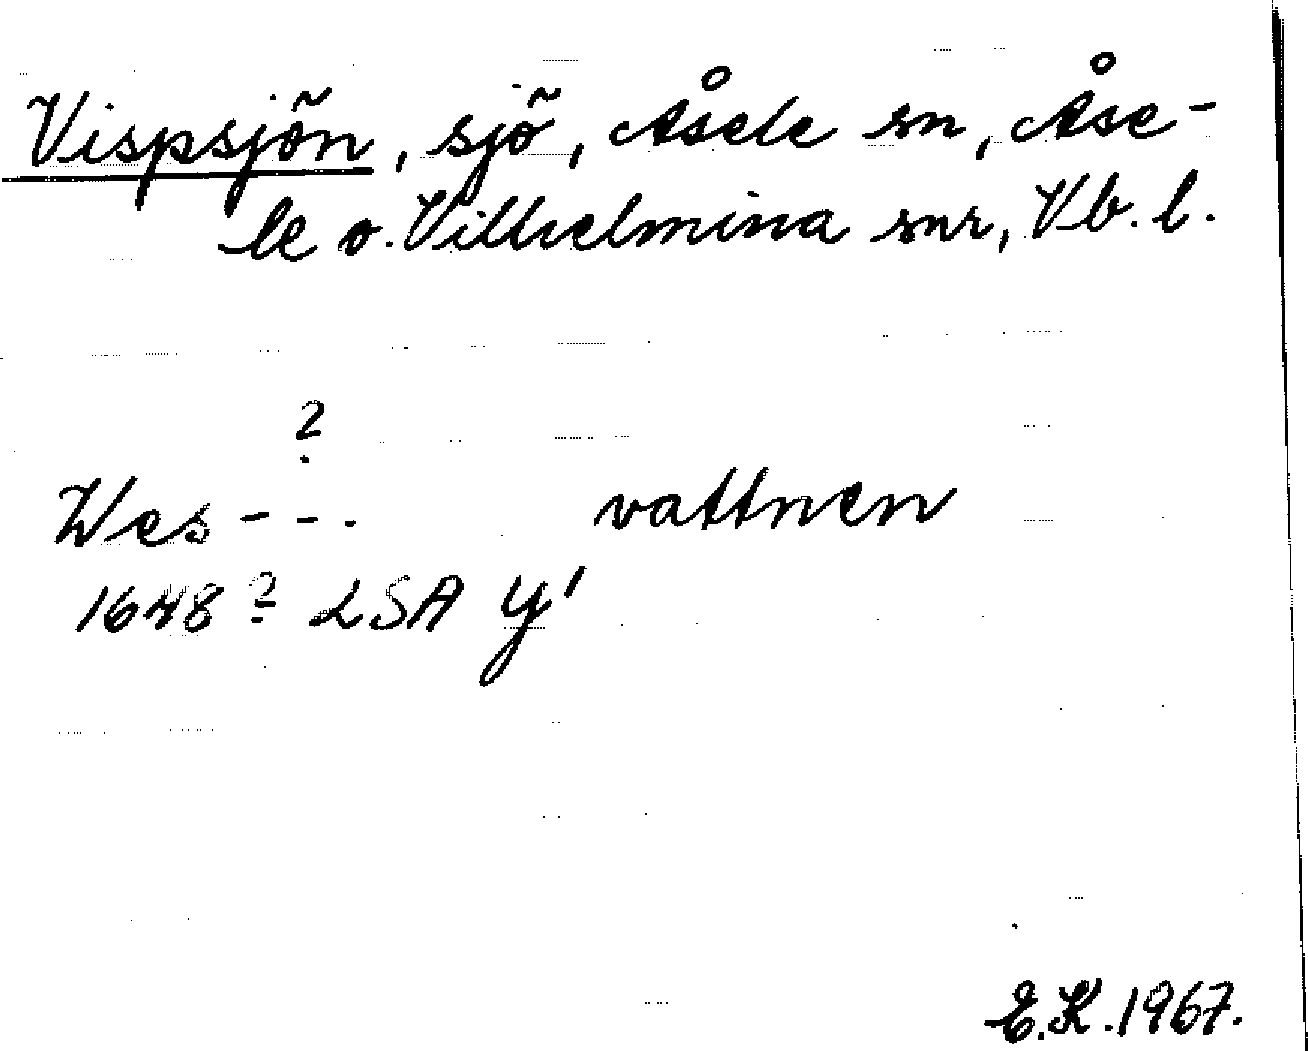 Vispsjön, sjö, Åsele sn, Åse-
le o. Vilhelmina snr, Vb. l.
?
Wes - - - vattnen
1648? LSA Y'
E.K. 1967.